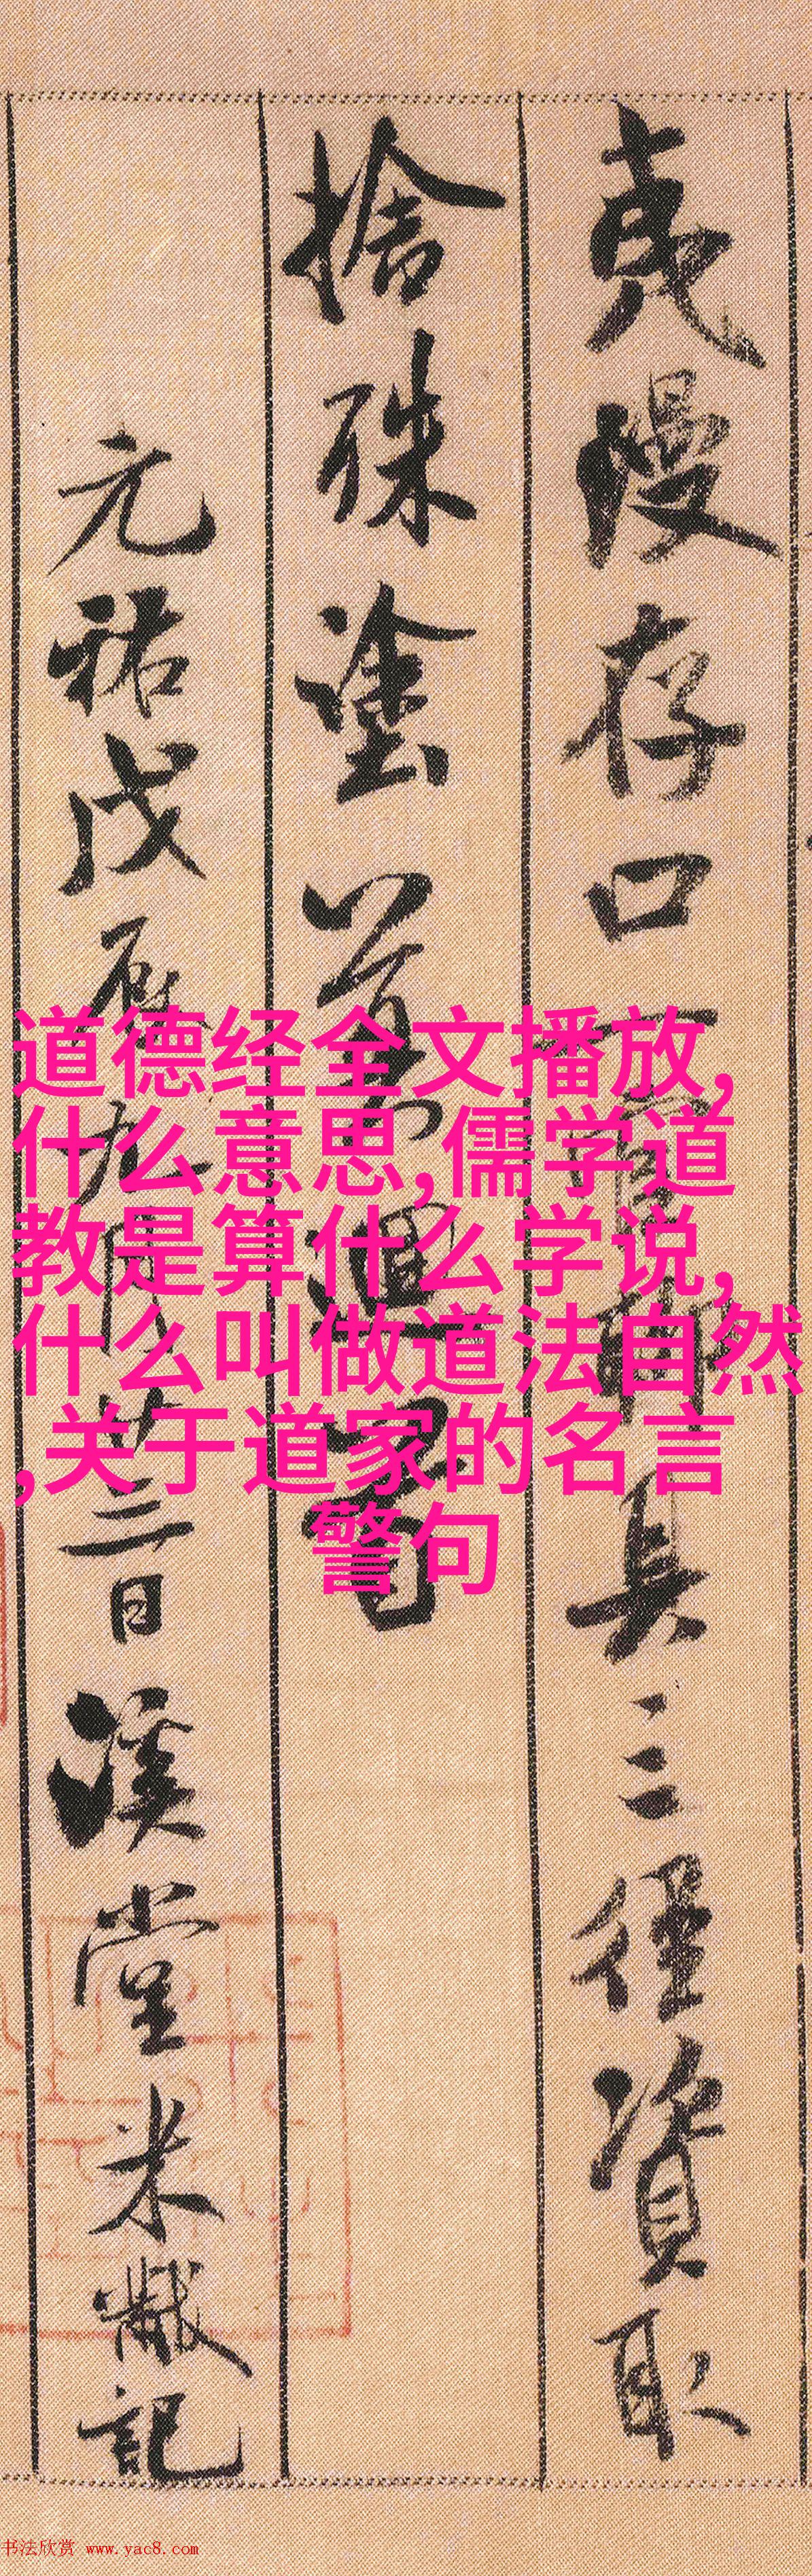 夷漫存口一官聊具三徑資取
捨殊塗莫迴首
元祐戊辰九月廿三日溪堂米黻記
道德经全文播放,
什么意思,儒学道
教是算什么学说,
什么叫做道法自然
,关于道家的名言
警句
书法欣赏 www.yac8.com